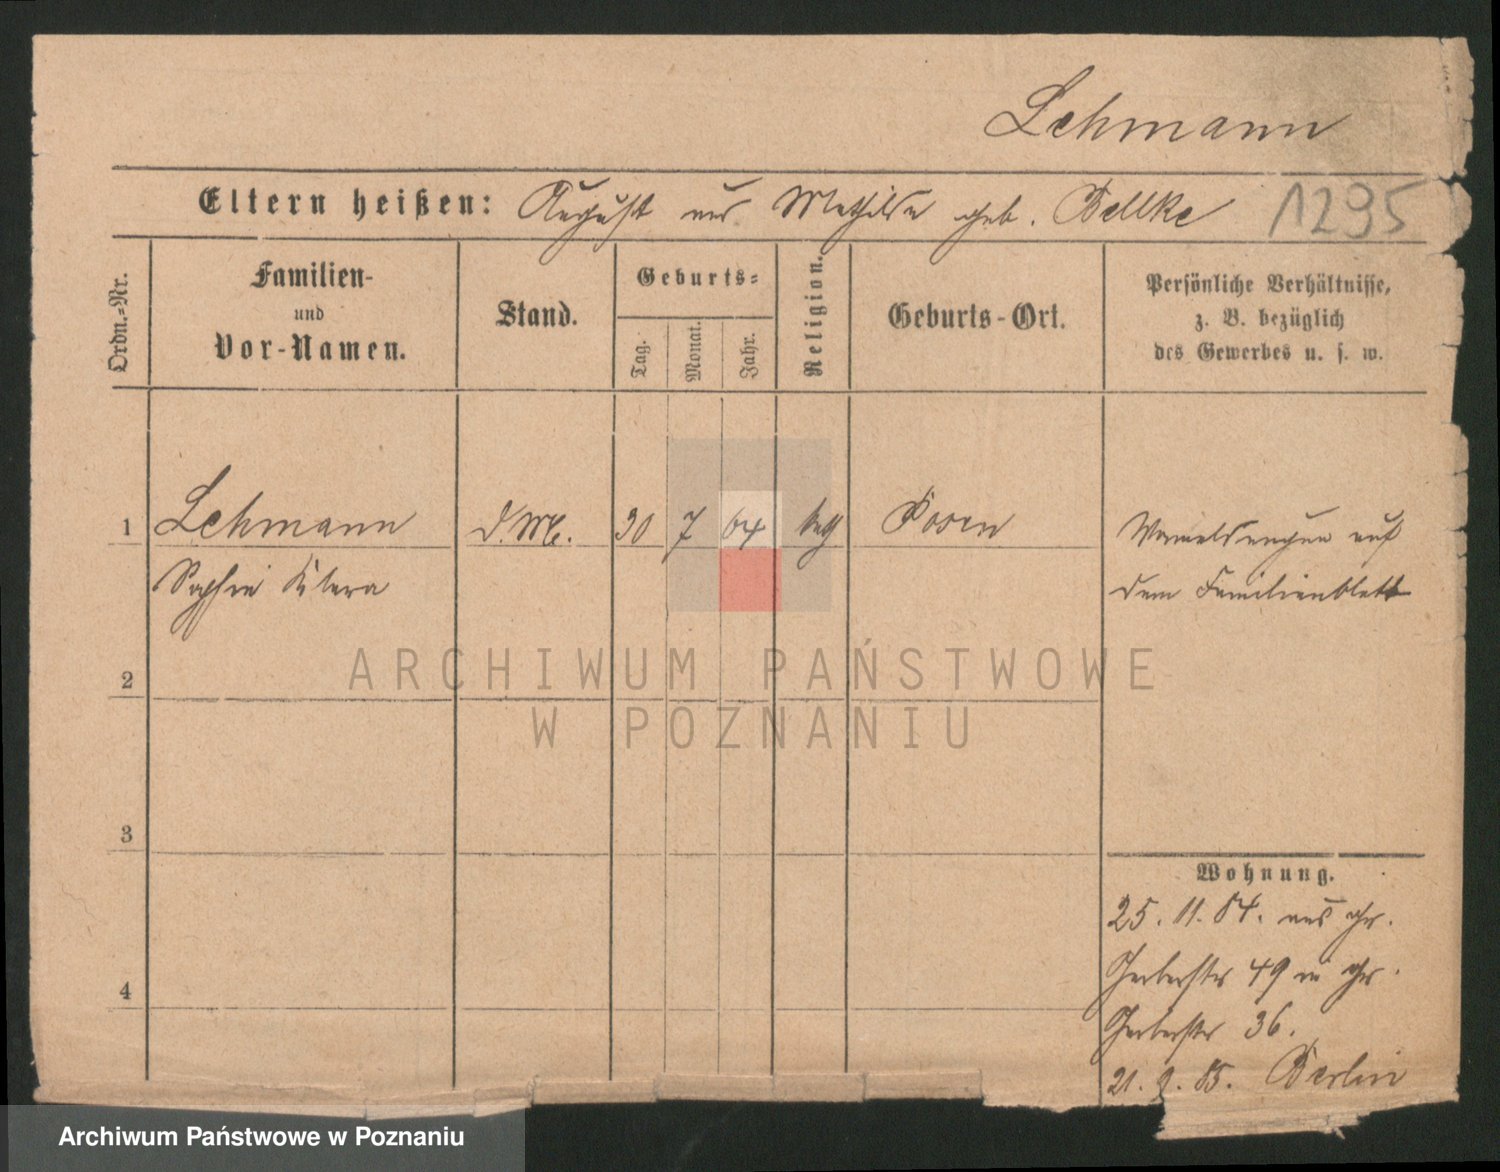 Lehmann
Eltern heißen: August und Mathilde geb. Bellke
1295
Ordn.=Nr.
Familien-
und
Vor-Namen.
Stand.
Geburts=
Tag.
Monat.
Jahr.
Religion.
Geburts-Ort.
Persönliche Verhältnisse,
z. B. bezüglich
des Gewerbes u. s. w.
1
Lehmann
d. M.
30
7
64
Posen
auf
Sophie Klara
dem Familienblatt
2
3
4
Wohnung.
25. 11. 84. aus gr.
Gerberstr 49 in gr.
Gerberstr 36.
21. 9. 85. Berlin
ARCHIWUM PAŃSTWOWE
W POZNANIU
Archiwum Państwowe w Poznaniu